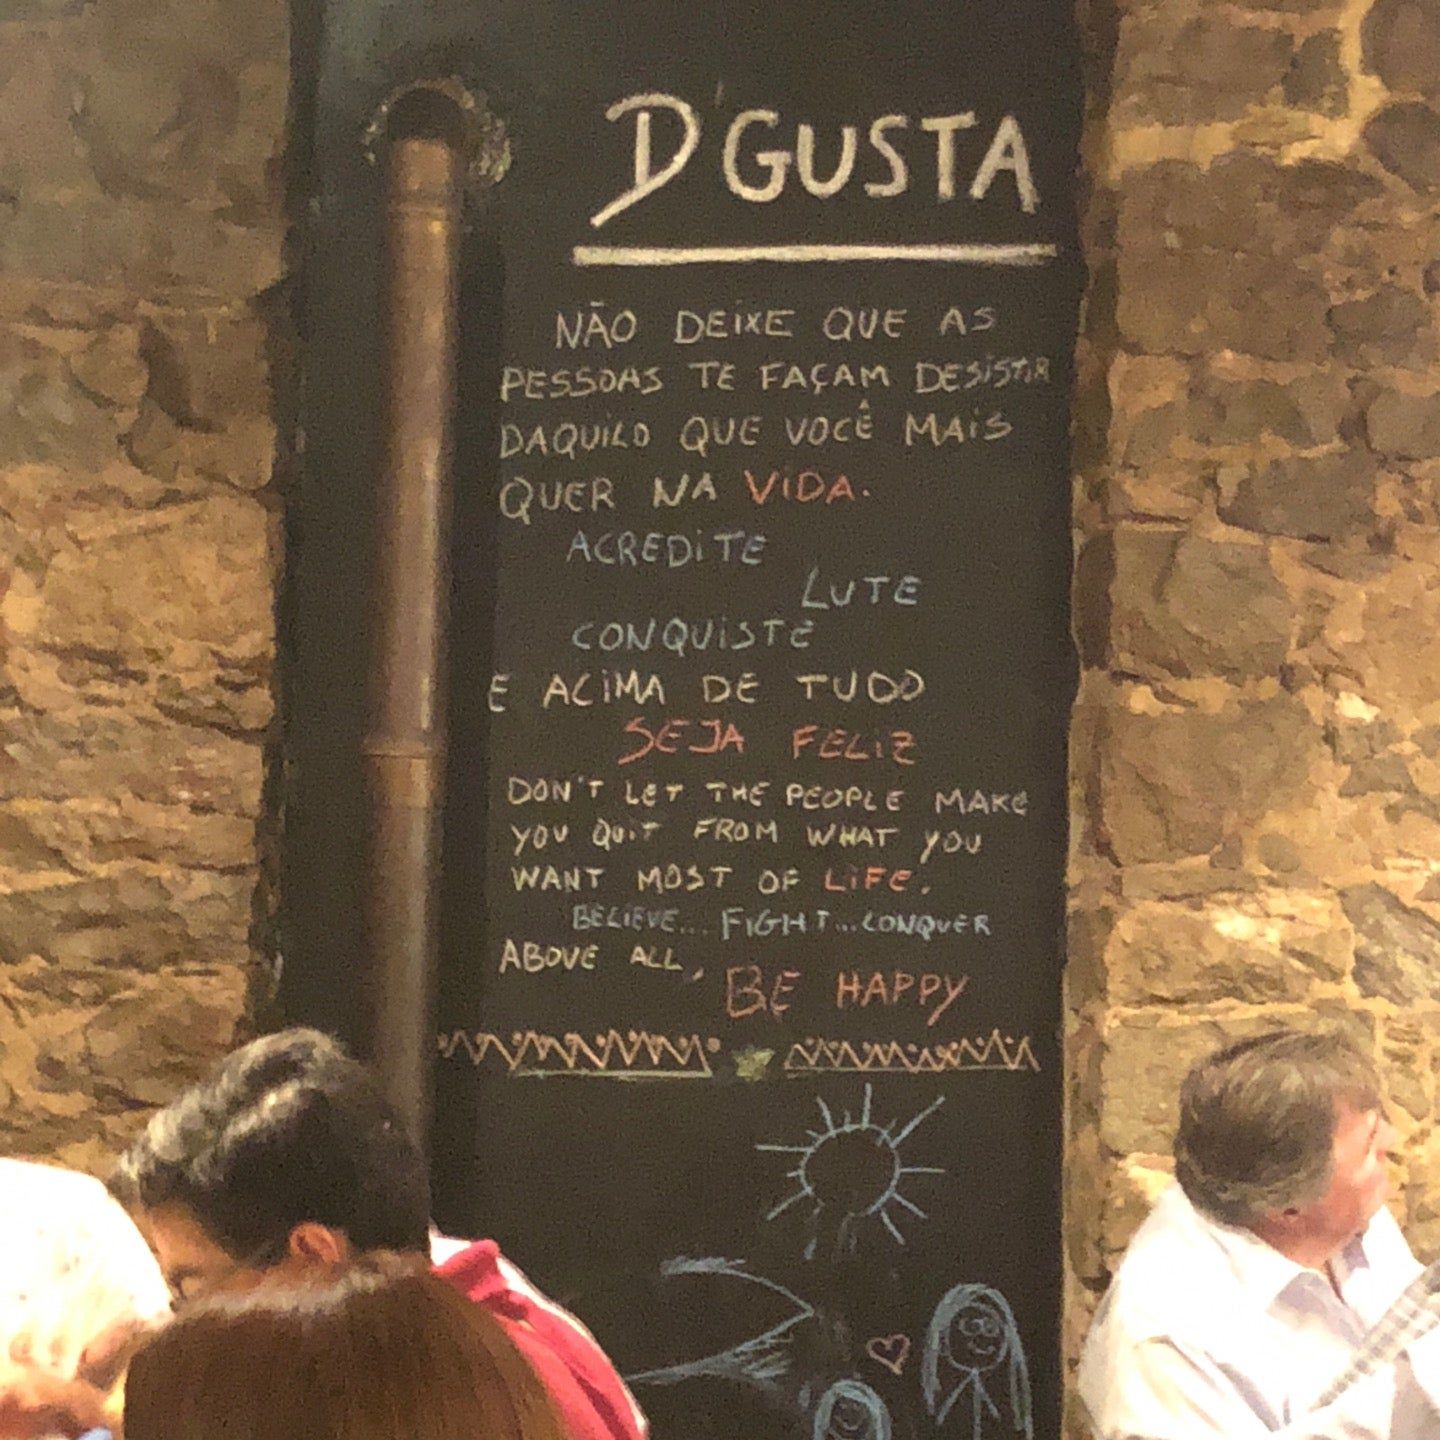 D'GUSTA
NÃO DEIXE QUE AS
PESSOAS TE FAÇAM DESISTIR
DAQUILO QUE VOCÊ MAIS
QUER NA VIDA.
ACREDITE
LUTE
CONQUISTE
E ACIMA DE TUDO
SEJA FELIZ
DON'T LET THE PEOPLE MAKE
YOU QUIT FROM WHAT YOU
WANT MOST OF LIFE.
BELIEVE... FIGHT...CONQUER
ABOVE ALL,
BE HAPPY